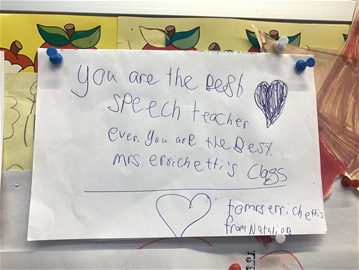 you are the best
speech teacher
ever. you are the best.
mrs. errichetti's class
to mrs errichetti's
from Natalina